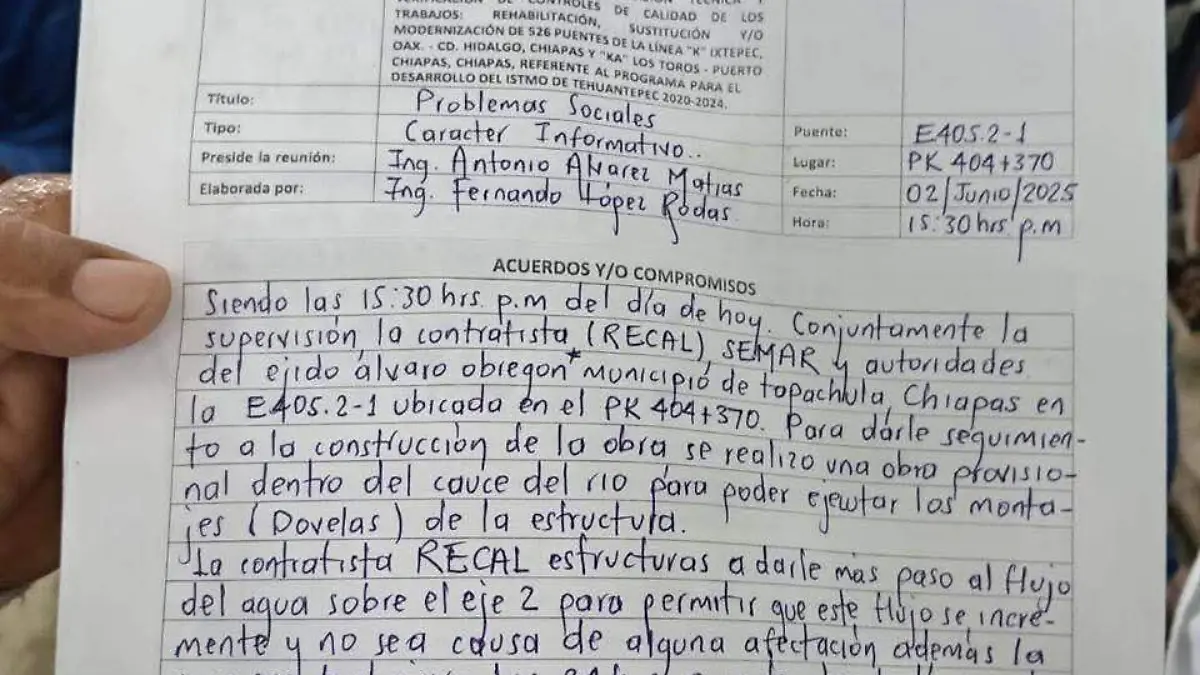 CONTROLES DE CALIDAD DE LOS
TRABAJOS: REHABILITACIÓN, SUSTITUCIÓN Y/O
MODERNIZACIÓN DE 526 PUENTES DE LA LÍNEA "K" IXTEPEC,
OAX. - CD. HIDALGO, CHIAPAS Y "KA" LOS TOROS - PUERTO
CHIAPAS, CHIAPAS, REFERENTE AL PROGRAMA PARA EL
DESARROLLO DEL ISTMO DE TEHUANTEPEC 2020-2024.
Título: Problemas Sociales
Tipo: Caracter Informativo..
Puente: E405.2-1
Preside la reunión: Ing. Antonio Alvarez Matias
Lugar: PK 404+370
Elaborada por: Ing. Fernando López Rodas
Fecha: 02/Junio/2025
Hora: 15:30 hrs p.m
ACUERDOS Y/O COMPROMISOS
Siendo las 15:30 hrs p.m del día de hoy. Conjuntamente la
supervisión, la contratista (RECAL), SEMAR y autoridades
del ejido álvaro obregon * municipió de tapachula, Chiapas en
la E405.2-1 ubicada en el PK 404+370. Para darle seguimien-
to a la construcción de la obra se realizo una obra provisio-
nal dentro del cauce del rio para poder ejecutar los monta-
jes (Dovelas) de la estructura.
La contratista RECAL estructuras a darle mas paso al flujo
del agua sobre el eje 2 para permitir que este flujo se incre-
mente y no sea causa de alguna afectación además la